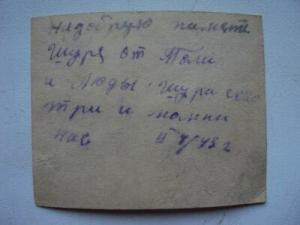 на добрую память
Шуре от Толи
и Люды. Шура смо
три и помни
нас 4/V/43 г